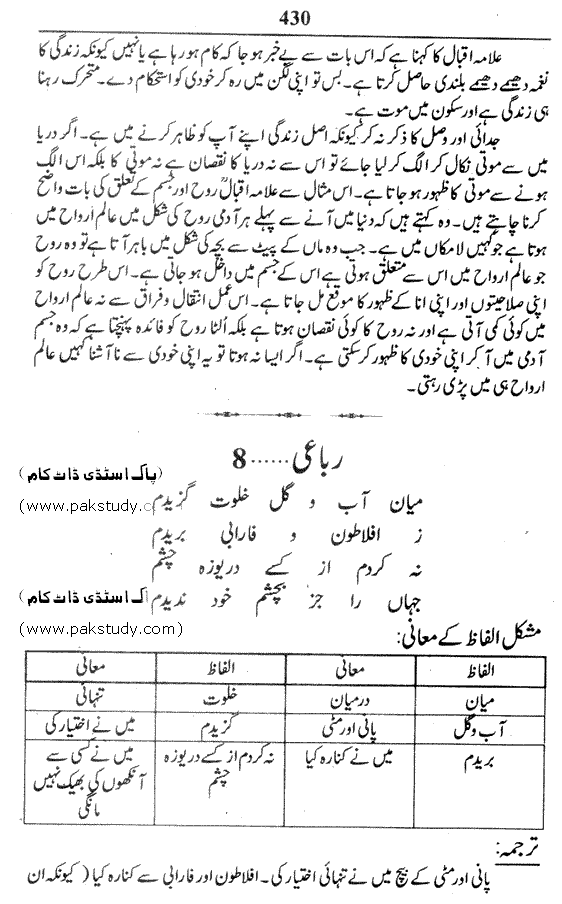 430
علامہ اقبال کا کہنا ہے کہ اس بات سے بے خبر ہو جا کہ کام ہو رہا ہے یا نہیں کیونکہ زندگی کا
نغمہ دھیمے دھیمے بلندی حاصل کرتا ہے۔ بس تو اپنی لگن میں رہ کر خودی کو استحکام دے۔ متحرک رہنا
ہی زندگی ہے اور سکون میں موت ہے۔
جدائی اور وصل کا ذکر نہ کر کیونکہ اصل زندگی اپنے آپ کو ظاہر کرنے میں ہے۔ اگر دریا
میں سے موتی نکال کر الگ کر لیا جائے تو اس سے نہ دریا کا نقصان ہے نہ موتی کا بلکہ اس الگ
ہونے سے موتی کا ظہور ہو جاتا ہے۔ اس مثال سے علامہ اقبالؒ روح اور جسم کے تعلق کی بات واضح
کرنا چاہتے ہیں۔ وہ کہتے ہیں کہ دنیا میں آنے سے پہلے ہر آدمی روح کی شکل میں عالم ارواح میں
ہوتا ہے جو کہیں لامکاں میں ہے۔ جب وہ ماں کے پیٹ سے بچہ کی شکل میں باہر آتا ہے تو وہ روح
جو عالم ارواح میں اس سے متعلق ہوتی ہے اس کے جسم میں داخل ہو جاتی ہے۔ اس طرح روح کو
اپنی صلاحیتوں اور اپنی انا کے ظہور کا موقع مل جاتا ہے۔ اس عمل انتقال و فراق سے نہ عالم ارواح
میں کوئی کمی آتی ہے اور نہ روح کا کوئی نقصان ہوتا ہے بلکہ الٹا روح کو فائدہ پہنچتا ہے کہ وہ جسم
آدمی میں آ کر اپنی خودی کا ظہور کر سکتی ہے۔ اگر ایسا نہ ہوتا تو یہ اپنی خودی سے نا آشنا کہیں عالم
ارواح ہی میں پڑی رہتی۔
رباعی ...... 8
(پاک اسٹڈی ڈاٹ کام)
میان آب و گل خلوت گزیدم
(www.pakstudy.c
ز افلاطون و فارابی بریدم
نہ کردم از کسے دریوزہ چشم
جہاں را جز بچشم خود ندیدم
اک اسٹڈی ڈاٹ کام)
(www.pakstudy.com)
مشکل الفاظ کے معانی:
الفاظ معانی الفاظ معانی
میان درمیان خلوت تنہائی
آب و گل پانی اور مٹی گزیدم میں نے اختیار کی
بریدم میں نے کنارہ کیا نہ کردم از کسے دریوزہ میں نے کسی سے
چشم آنکھوں کی بھیک نہیں
مانگی
ترجمہ:
پانی اور مٹی کے بیچ میں نے تنہائی اختیار کی۔ افلاطون اور فارابی سے کنارہ کیا (کیونکہ ان